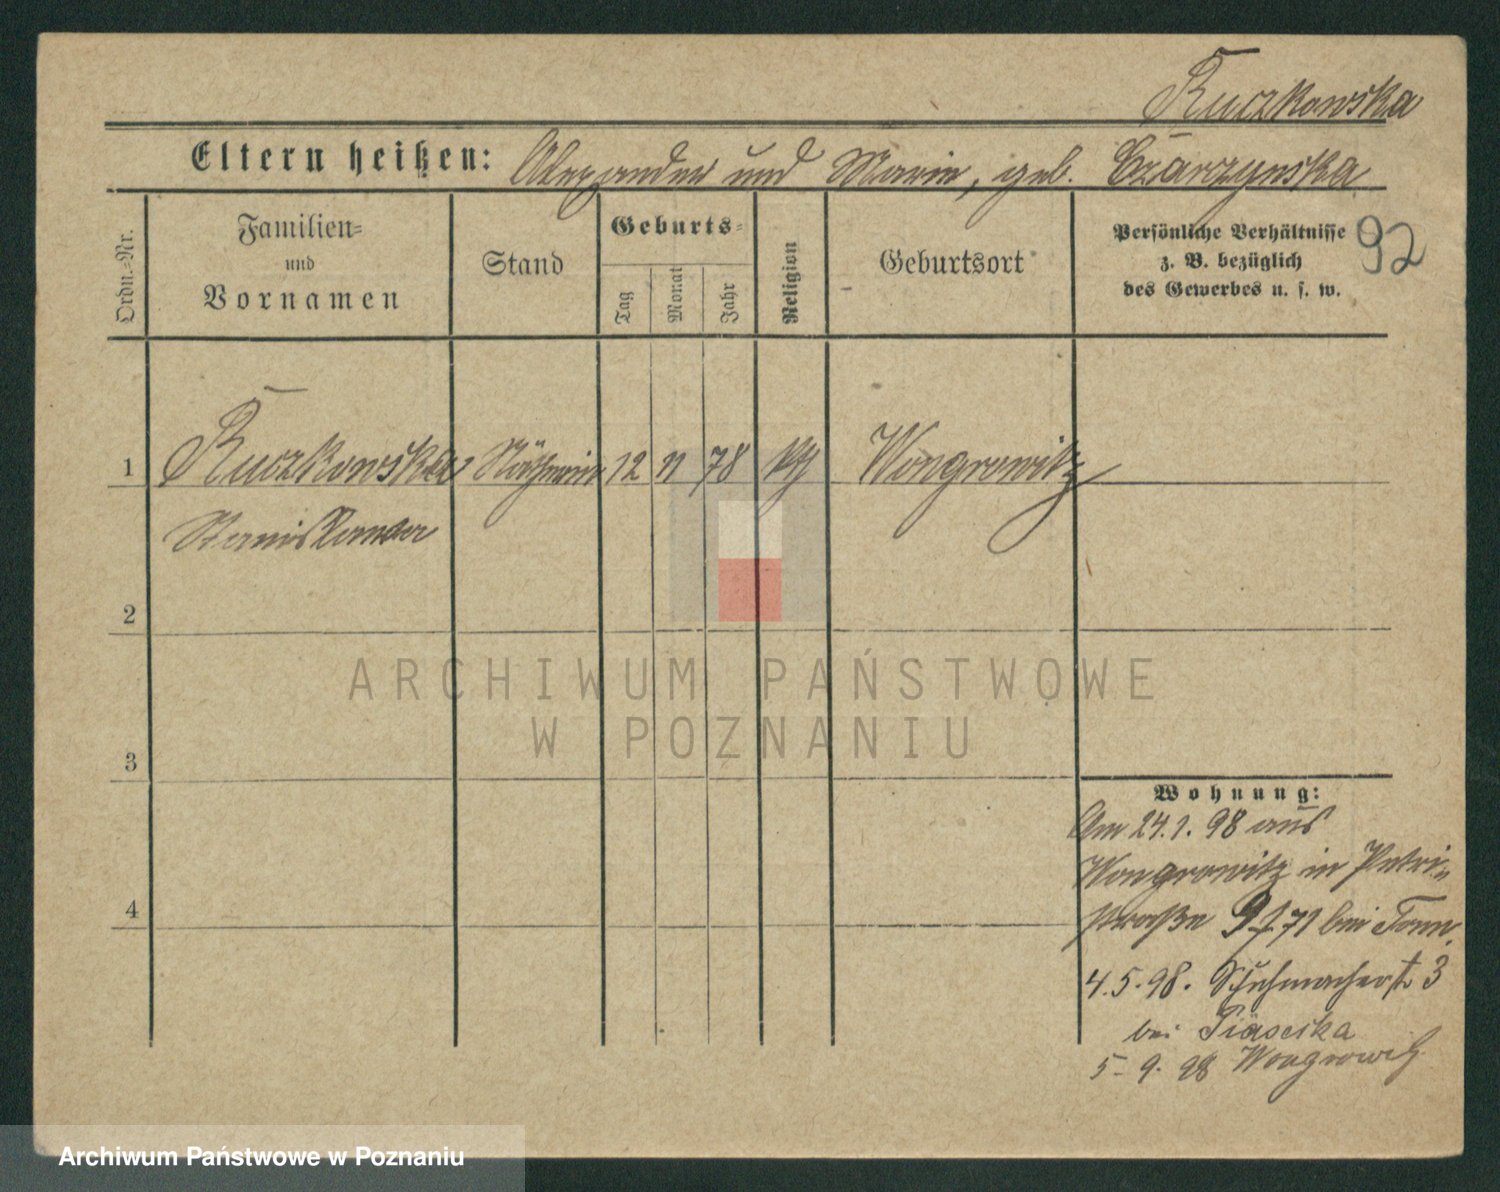 Ruczkowska
Eltern heißen: Alexander und Marie, geb. Czarzynska
Ordn.-Nr.
Familien-
und
Vornamen
Stand
Geburts-
Tag
Monat
Jahr
Religion
Geburtsort
Persönliche Verhältnisse
z. B. bezüglich
des Gewerbes u. s. w.
92
1 Ruczkowska Nähterin 12 11 78 kth Wongrowitz
Stanislawa
2
3
4
Wohnung:
Am 24.1.98 aus
Wongrowitz in Petri-
straße 9 f. 71 bei Tom.
4.5.98. Schuhmacherstr 3
bei Piasecka
5. 9. 98 Wongrowitz
ARCHIWUM PAŃSTWOWE
W POZNANIU
Archiwum Państwowe w Poznaniu